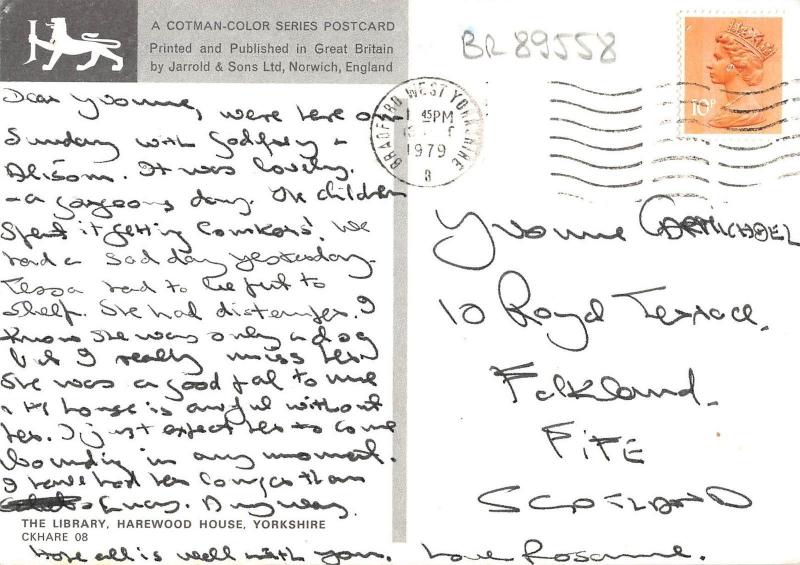 A COTMAN-COLOR SERIES POSTCARD
Printed and Published in Great Britain
by Jarrold & Sons Ltd, Norwich, England
BR 89558
10P
BRADFORD WEST YORKSHIRE
45PM
1979
8
Dear Yvonne, were here on
Sunday with Godfrey &
Alison. It was lovely.
- a gorgeous day. The children
spent it getting conkers'. We
had a sad day yesterday.
Tessa had to be put to
sleep. She had distemper. I
know she was only a dog
but I really miss her.
She was a good pal to me
& the house is awful without
her. I just expect her to come
bounding in any moment.
I have had her longer than
Lucy. Anyway.
THE LIBRARY, HAREWOOD HOUSE, YORKSHIRE
CKHARE 08
hope all is well with you. Love Rosanne.
Yvonne CARMICHAEL
10 Royal Terrace.
Falkland.
FIFE
SCOTLAND